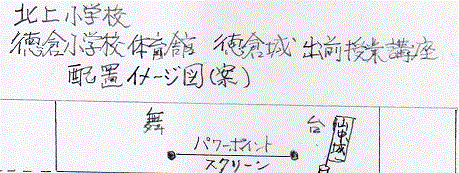 北上小学校
徳倉小学校体育館 徳倉城 出前授業講座
配置イメージ図(案)
舞 台
山中城
パワーポイント
スクリーン